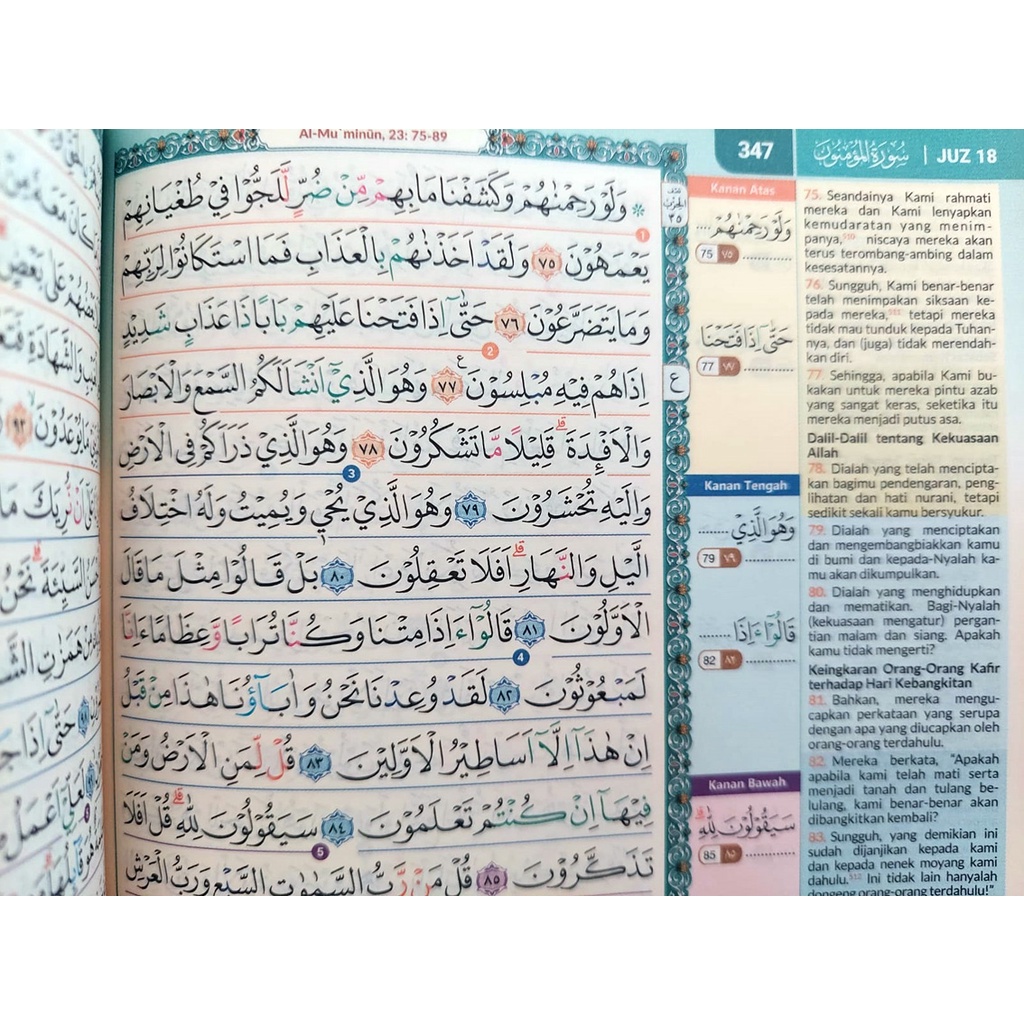 Al-Mu`minūn, 23: 75-89
347
سُوْرَةُ الْمُؤْمِنُوْنَ | JUZ 18
۞ وَلَوْ رَحِمْنٰهُمْ وَكَشَفْنَا مَا بِهِمْ مِّنْ ضُرٍّ لَّلَجُّوْا فِيْ طُغْيَانِهِمْ
1
يَعْمَهُوْنَ ٧٥ وَلَقَدْ اَخَذْنٰهُمْ بِالْعَذَابِ فَمَا اسْتَكَانُوْا لِرَبِّهِمْ
وَمَا يَتَضَرَّعُوْنَ ٧٦ حَتّٰٓى اِذَا فَتَحْنَا عَلَيْهِمْ بَابًا ذَا عَذَابٍ شَدِيْدٍ
2
اِذَا هُمْ فِيْهِ مُبْلِسُوْنَ ࣖ ٧٧ وَهُوَ الَّذِيْٓ اَنْشَاَ لَكُمُ السَّمْعَ وَالْاَبْصَارَ
وَالْاَفْـِٕدَةَۗ قَلِيْلًا مَّا تَشْكُرُوْنَ ٧٨ وَهُوَ الَّذِيْ ذَرَاَكُمْ فِى الْاَرْضِ
3
وَاِلَيْهِ تُحْشَرُوْنَ ٧٩ وَهُوَ الَّذِيْ يُحْيٖ وَيُمِيْتُ وَلَهُ اخْتِلَافُ
الَّيْلِ وَالنَّهَارِۗ اَفَلَا تَعْقِلُوْنَ ٨٠ بَلْ قَالُوْا مِثْلَ مَا قَالَ
الْاَوَّلُوْنَ ٨١ قَالُوْٓا ءَاِذَا مِتْنَا وَكُنَّا تُرَابًا وَّعِظَامًا ءَاِنَّا
4
لَمَبْعُوْثُوْنَ ٨٢ لَقَدْ وُعِدْنَا نَحْنُ وَاٰبَاۤؤُنَا هٰذَا مِنْ قَبْلُ
اِنْ هٰذَآ اِلَّآ اَسَاطِيْرُ الْاَوَّلِيْنَ ٨٣ قُلْ لِّمَنِ الْاَرْضُ وَمَنْ
فِيْهَآ اِنْ كُنْتُمْ تَعْلَمُوْنَ ٨٤ سَيَقُوْلُوْنَ لِلّٰهِۗ قُلْ اَفَلَا
5
تَذَكَّرُوْنَ ٨٥ قُلْ مَنْ رَّبُّ السَّمٰوٰتِ السَّبْعِ وَرَبُّ الْعَرْشِ
ع
Kanan Atas
وَلَوْ رَحِمْنٰهُمْ ....
75 ٧٥ ............
حَتّٰٓى اِذَا فَتَحْنَا
77 ٧٧ ............
Kanan Tengah
وَهُوَ الَّذِيْ ........
79 ٧٩ ............
قَالُوْٓا ءَاِذَا ........
82 ٨٢ ............
Kanan Bawah
سَيَقُوْلُوْنَ لِلّٰهِۗ
85 ٨٥ ............
75. Seandainya Kami rahmati
mereka dan Kami lenyapkan
kemudaratan yang menim-
panya, niscaya mereka akan
terus terombang-ambing dalam
kesesatannya.
76. Sungguh, Kami benar-benar
telah menimpakan siksaan ke-
pada mereka, tetapi mereka
tidak mau tunduk kepada Tuhan-
nya, dan (juga) tidak merendah-
kan diri.
77. Sehingga, apabila Kami bu-
kakan untuk mereka pintu azab
yang sangat keras, seketika itu
mereka menjadi putus asa.
Dalil-Dalil tentang Kekuasaan
Allah
78. Dialah yang telah mencipta-
kan bagimu pendengaran, peng-
lihatan dan hati nurani, tetapi
sedikit sekali kamu bersyukur.
79. Dialah yang menciptakan
dan mengembangbiakkan kamu
di bumi dan kepada-Nyalah ka-
mu akan dikumpulkan.
80. Dialah yang menghidupkan
dan mematikan. Bagi-Nyalah
(kekuasaan mengatur) pergan-
tian malam dan siang. Apakah
kamu tidak mengerti?
Keingkaran Orang-Orang Kafir
terhadap Hari Kebangkitan
81. Bahkan, mereka mengu-
capkan perkataan yang serupa
dengan apa yang diucapkan oleh
orang-orang terdahulu.
82. Mereka berkata, "Apakah
apabila kami telah mati serta
menjadi tanah dan tulang be-
lulang, kami benar-benar akan
dibangkitkan kembali?
83. Sungguh, yang demikian ini
sudah dijanjikan kepada kami
dan kepada nenek moyang kami
dahulu. Ini tidak lain hanyalah
dongeng orang-orang terdahulu!"